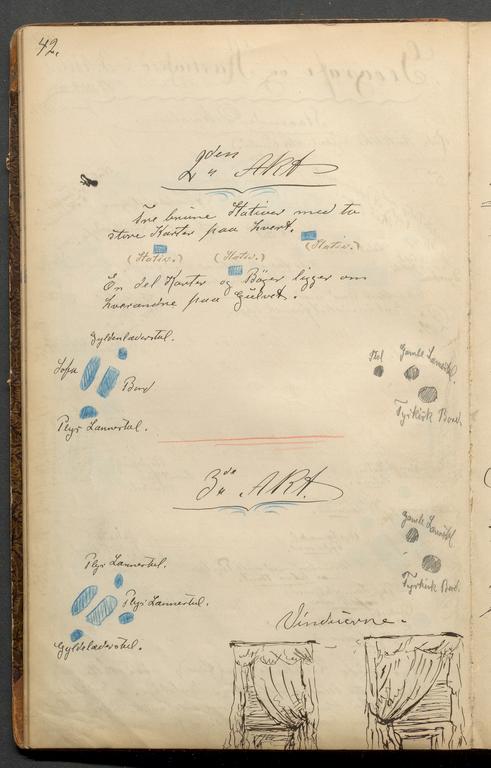 42.
2den Akt
Tre brune Stativer med to
store Karter paa hvert.
(Stativ.)
(Stativ.) (Stativ.)
En del Karter og Bøger ligger om
hverandre paa Gulvet.
Gyldenlæderstol.
Sofa
Bord
Plys Lænestol.
Stol
Gamle Lænestol.
Tyrkisk Bord.
3die Akt.
Gamle Lænestol
Plys Lænestol.
Plys Lænestol.
Tyrkisk Bord.
Gyldelæderstol.
Vinduerne.